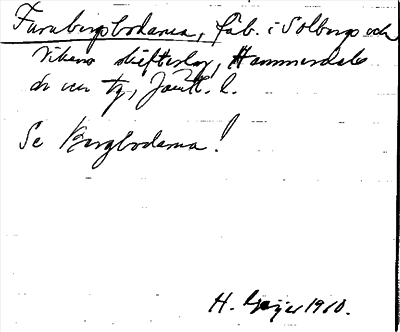 Furubergsbodarna, fäb. i Solbergs och
Vikens skifteslag, Hammerdals
s:n och tg, Jämtl. l.
Se Bergbodarna!
H. Geijer 1910.